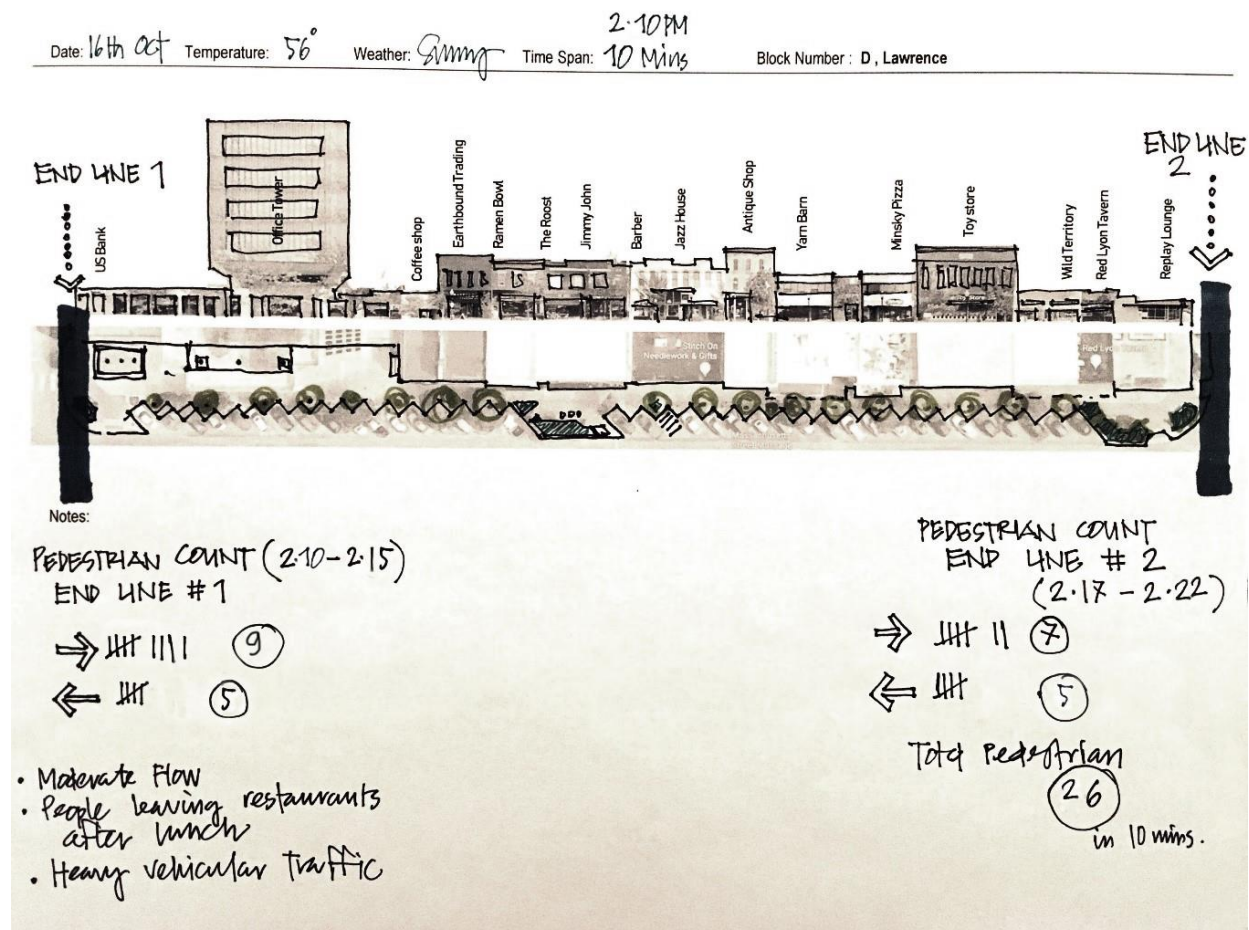 2.10PM
Date: 16th Oct Temperature: 56° Weather: Sunny Time Span: 10 Mins Block Number : D , Lawrence
END LINE 1
END LINE
2
US Bank
Office Tower
Coffee shop
Earthbound Trading
Ramen Bowl
The Roost
Jimmy John
Barber
Jazz House
Antique Shop
Yarn Barn
Minsky Pizza
Toy store
Wild Territory
Red Lyon Tavern
Replay Lounge
Stitch On
Needlework & Gifts
Red Lyo
Notes:
PEDESTRIAN COUNT (2.10-2.15)
END LINE #1
9
5
• Moderate Flow
• People leaving restaurants
after lunch
• Heavy vehicular Traffic
PEDESTRIAN COUNT
END LINE # 2
(2.17 - 2.22)
7
5
Total Pedestrian
26
in 10 mins.